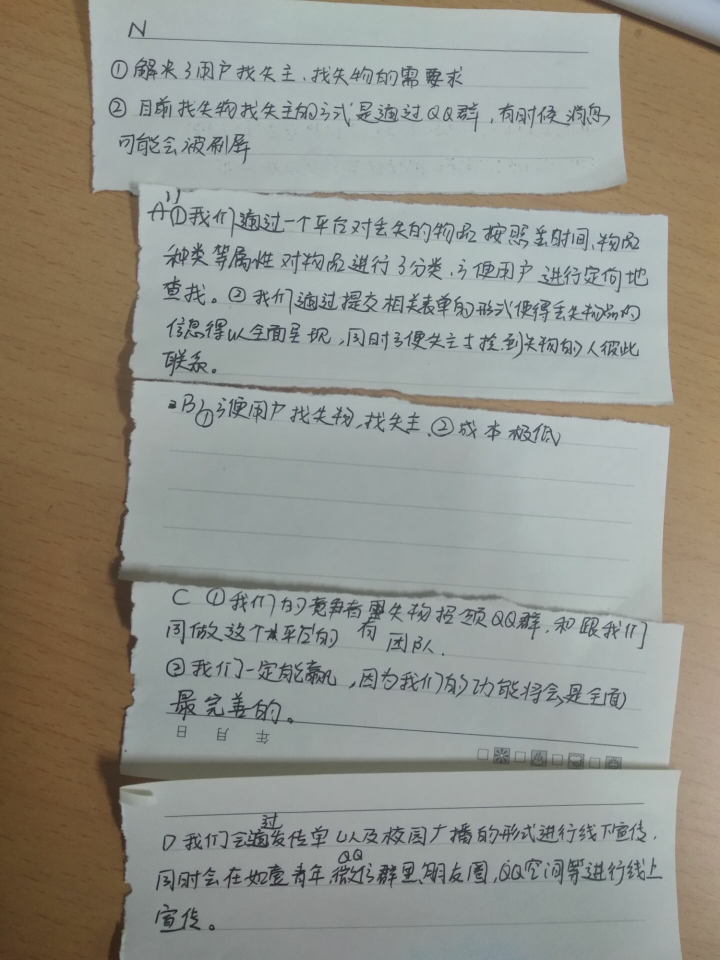 N
①解决了用户找失主、找失物的需要求
②目前找失物找失主的方式是通过QQ群，有时候消息
可能会被刷屏
A①我们通过一个平台对丢失的物品按照丢时间、物品
种类等属性对物品进行了分类，方便用户进行定向地
查找。②我们通过提交相关表单的形式使得丢失物品的
信息得以全面呈现，同时方便失主与捡到失物的人彼此
联系。
B①方便用户找失物，找失主、②成本极低
C ①我们的竞争者是失物招领QQ群，和跟我们
同做这个平台的有团队.
②我们一定能赢，因为我们的功能将会是全面
最完善的。
年 月 日
D 我们会通过发传单以及校园广播的形式进行线下宣传，
同时会在如壹青年，微信QQ群里朋友圈，QQ空间等进行线上
宣传。